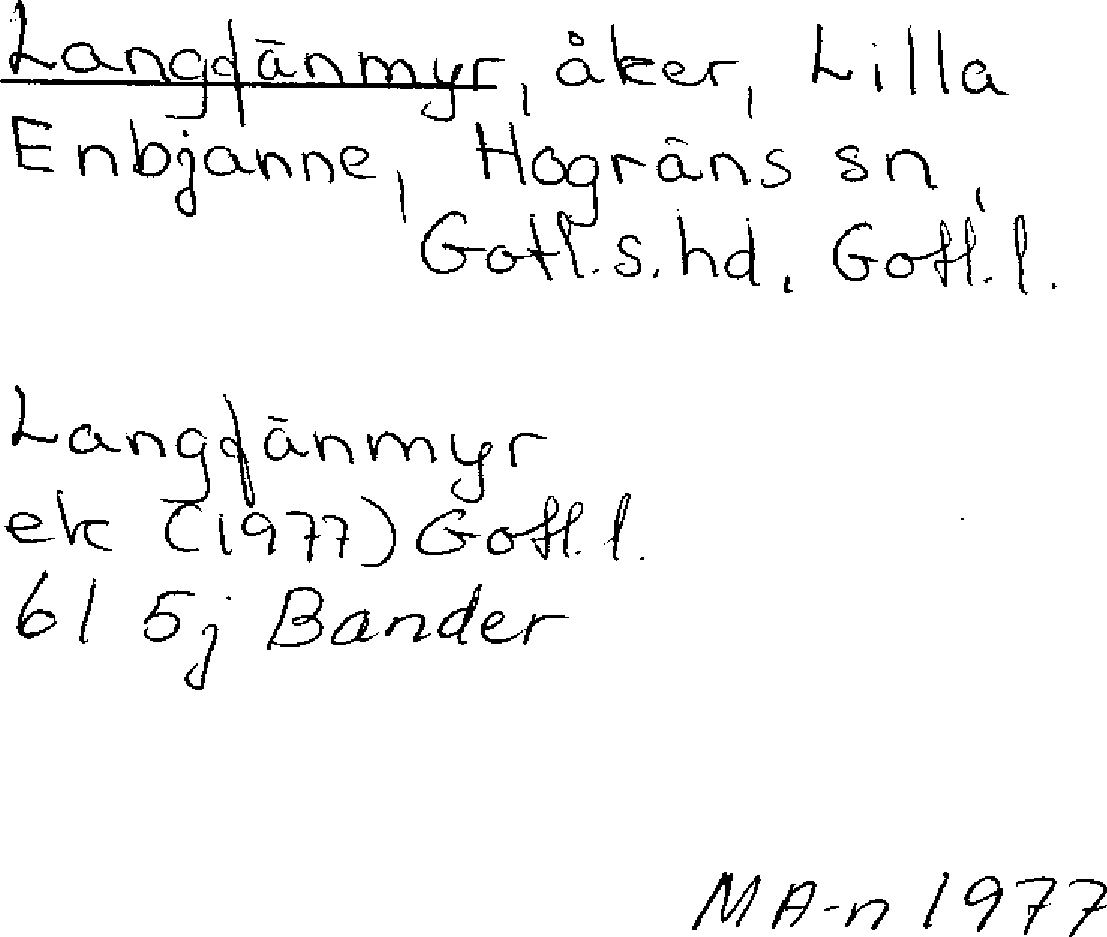 Langfänmyr, åker, Lilla
Enbjänne, Hogräns sn,
Gotl.s.hd, Gotl.l.
Langfänmyr
ek (1977) Gotl.l.
61 5j Bander
MA-n 1977